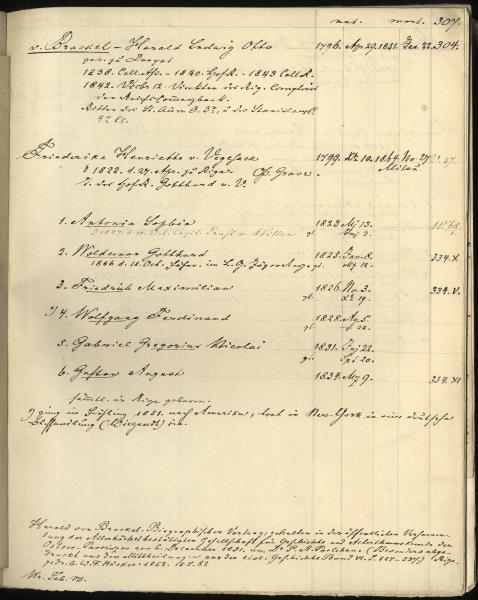 nat. mort. 307.
v. Brackel – Harald Ludwig Otto 1796. Apr 29. 1851. Jan. 22. 304.
geb. zu Dorpat
1838. Coll. Ass. – 1840. Hof R. – 1843 Coll R.
1842. Director des Rig. Comptoir
der Reichs Commerzbank.
Ritter des St. Ann O. 3r, u. des Stanislaus
4r Cl.
Friederike Henriette v. Vegesack 1799. Dc 10. 1864 No. 27.
1822. d. 27. Apr. zu Riga Mitau
T. des Hof R. Gotthard v. V.
1. Antonia Sophia 1823. Mz 13.
gt. 3.
2. Woldemar Gotthard 1825. Jan. 8. 334. X
1846 d. 18. Oct. im L. G. Jäger Reg. gt. 18.
3. Friedrich Maximilian 1826. No. 3. 334. V.
gt. Dc 19.
1) 4. Wolfgang Ferdinand 1828. Ag. 5.
gt. 22.
5. Gabriel Gregorius Nicolai 1831. 22.
gt. Spt 20.
6. Gustav August 1834. 9. 334. XI
sämtl. in Riga geboren.
1) ging im Frühling 1851. nach Amerika, trat in New-York in eine deutsche
Buchhandlung (Wiegandt) ein.
Harald von Brackel. Biographischer Vortrag gehalten in der öffentlichen Versamm-
lung der Allerhöchst bestätigten Gesellschaft für Geschichte und Alterthumskunde der
Ostsee-Provinzen am 6. December 1851. von Dr P. A. Poelchau (Besonders abge-
druckt aus den Mittheilungen aus der livl. Geschichte Band VI. Riga,
gedr. b. W. F. Häcker 1852.